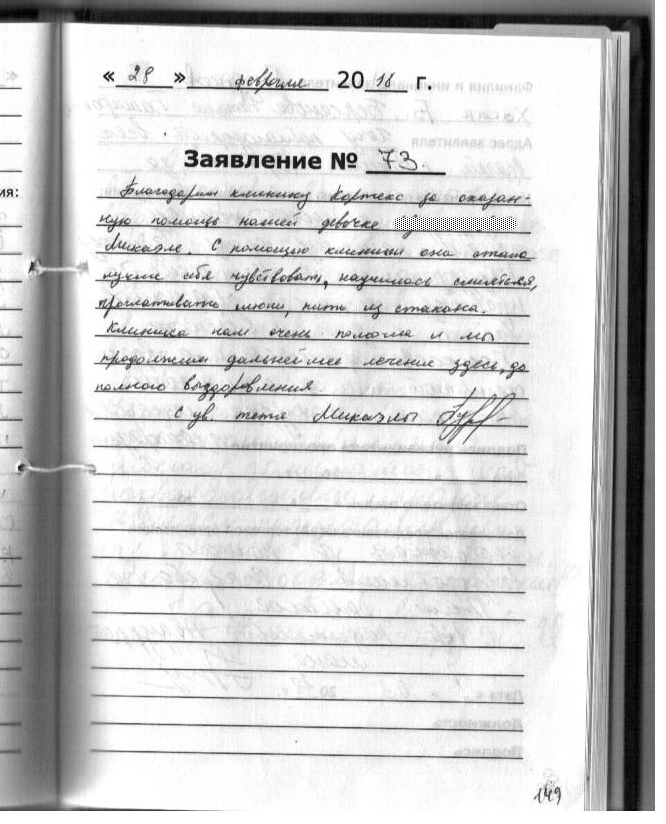 « 28 » февраля 2016 г.
Заявление № 73.
Благодарим клинику Кортекс за оказан-
ную помощь нашей девочке
Микаэле. С помощью клиники она стала
лучше себя чувствовать, научилась смеяться,
проглатывать слюни, пить из стакана.
Клиника нам очень помогла и мы
продолжим дальнейшее лечение здесь, до
полного выздоровления
С ув. тетя Микаэлы
ия:
149